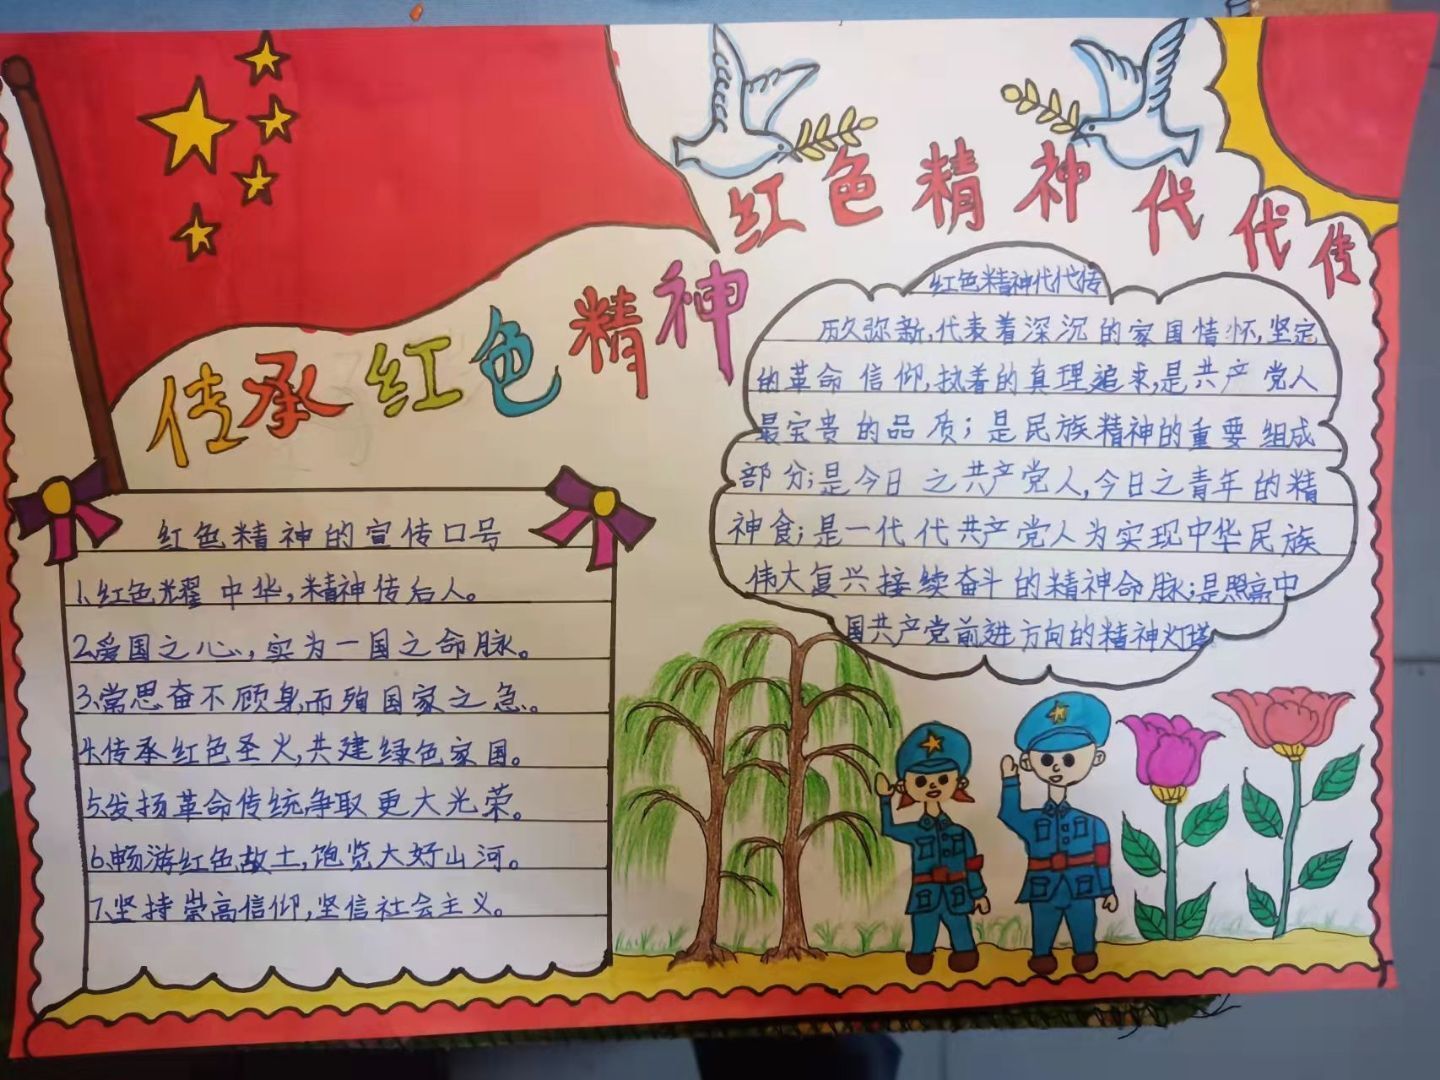 红色精神代代传
传承红色精神
红色精神的宣传口号
1、红色光耀中华，精神传后人。
2、爱国之心，实为一国之命脉。
3、常思奋不顾身，而殉国家之急。
4、传承红色圣火，共建绿色家园。
5、发扬革命传统，争取更大光荣。
6、畅游红色故土，饱览大好山河。
7、坚持崇高信仰，坚信社会主义。
红色精神代代传
历久弥新，代表着深沉的家国情怀，坚定
的革命信仰，执着的真理追求，是共产党人
最宝贵的品质；是民族精神的重要组成
部分；是今日之共产党人，今日之青年的精
神食；是一代代共产党人为实现中华民族
伟大复兴接续奋斗的精神命脉；是照亮中
国共产党前进方向的精神灯塔